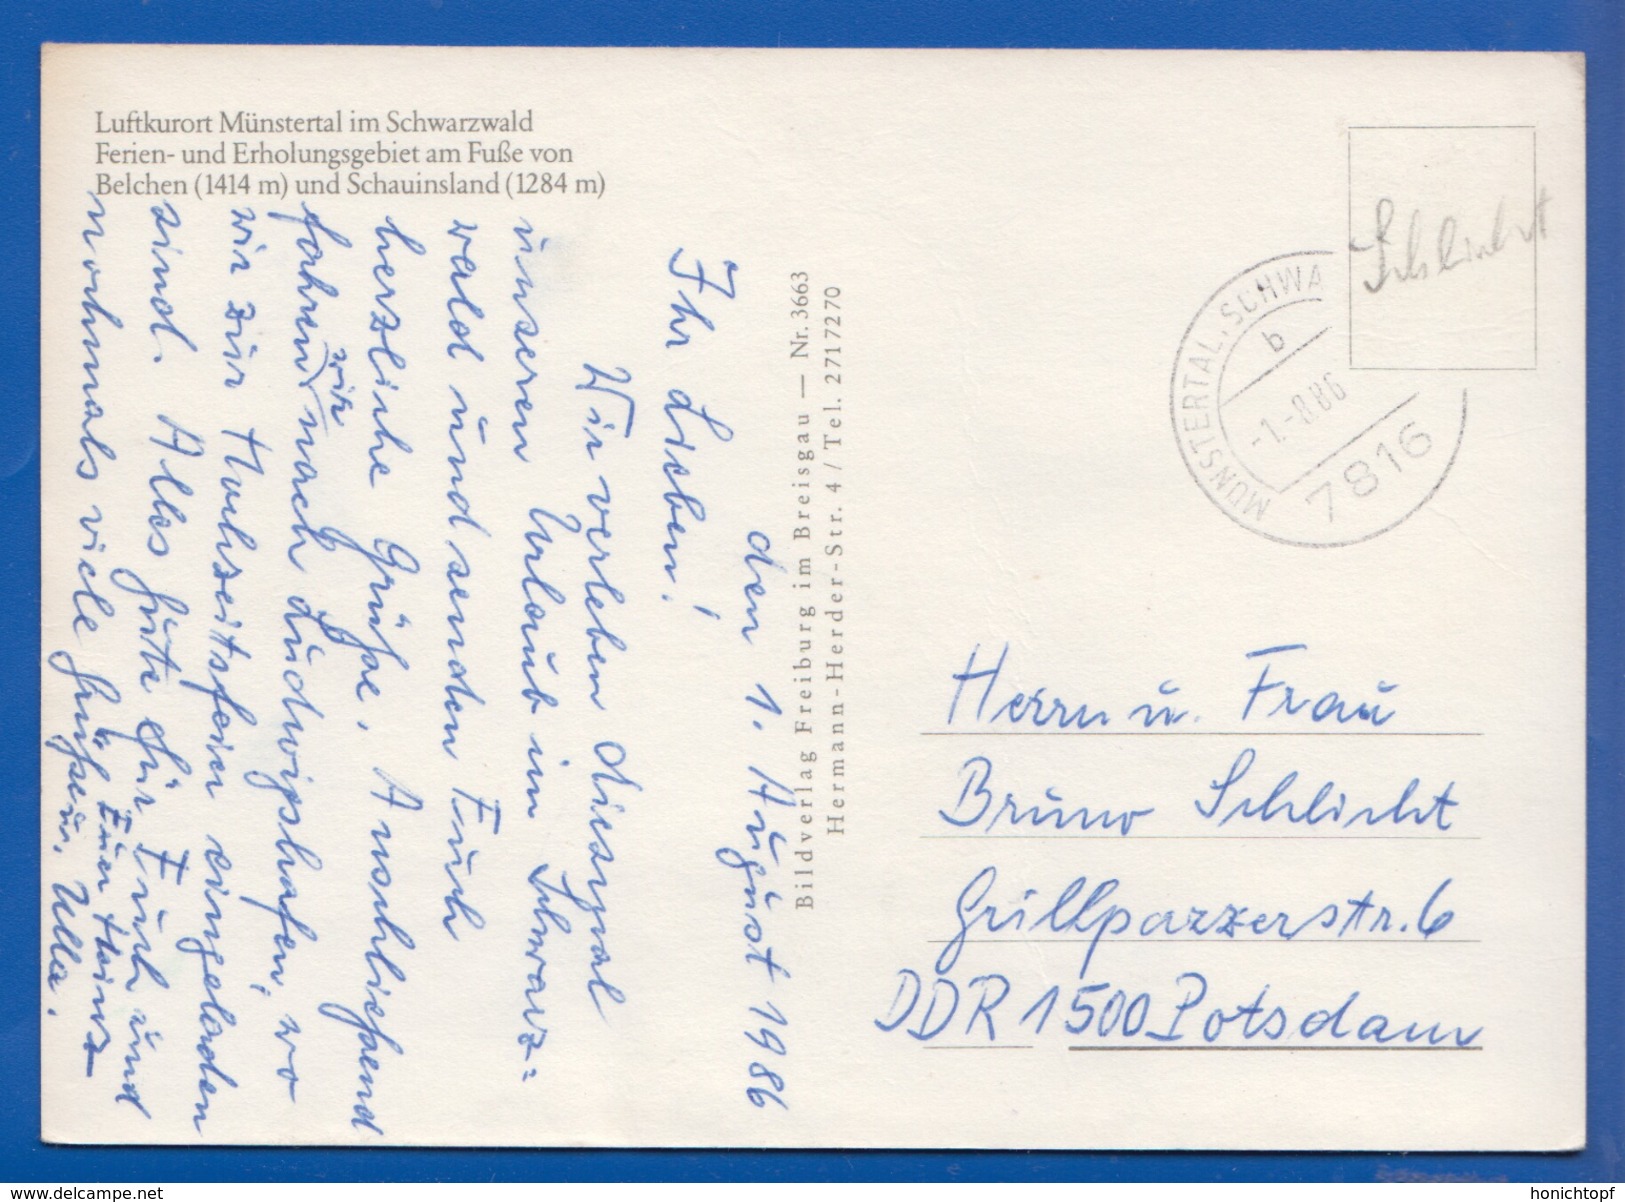 Luftkurort Münstertal im Schwarzwald
Ferien- und Erholungsgebiet am Fuße von
Belchen (1414 m) und Schauinsland (1284 m)
den 1. August 1986
Ihr Lieben!
Wir verleben diesmal
unseren Urlaub im Schwarz=
wald und senden Euch
herzliche Grüße. Anschließend
fahren wir nach Ludwigshafen, wo
wir zur Hochzeitsfeier eingeladen
sind. Alles Gute für Euch und
nochmals viele Grüße
Euer Heinz
u. Ulla.
Bildverlag Freiburg im Breisgau — Nr. 3663
Hermann-Herder-Str. 4 / Tel. 2717270
Schlicht
MÜNSTERTAL, SCHWA
b
-1.-8.86
7816
Herrn u. Frau
Bruno Schlicht
Grillparzerstr. 6
DDR 1500 Potsdam
www.delcampe.net
honichtopf